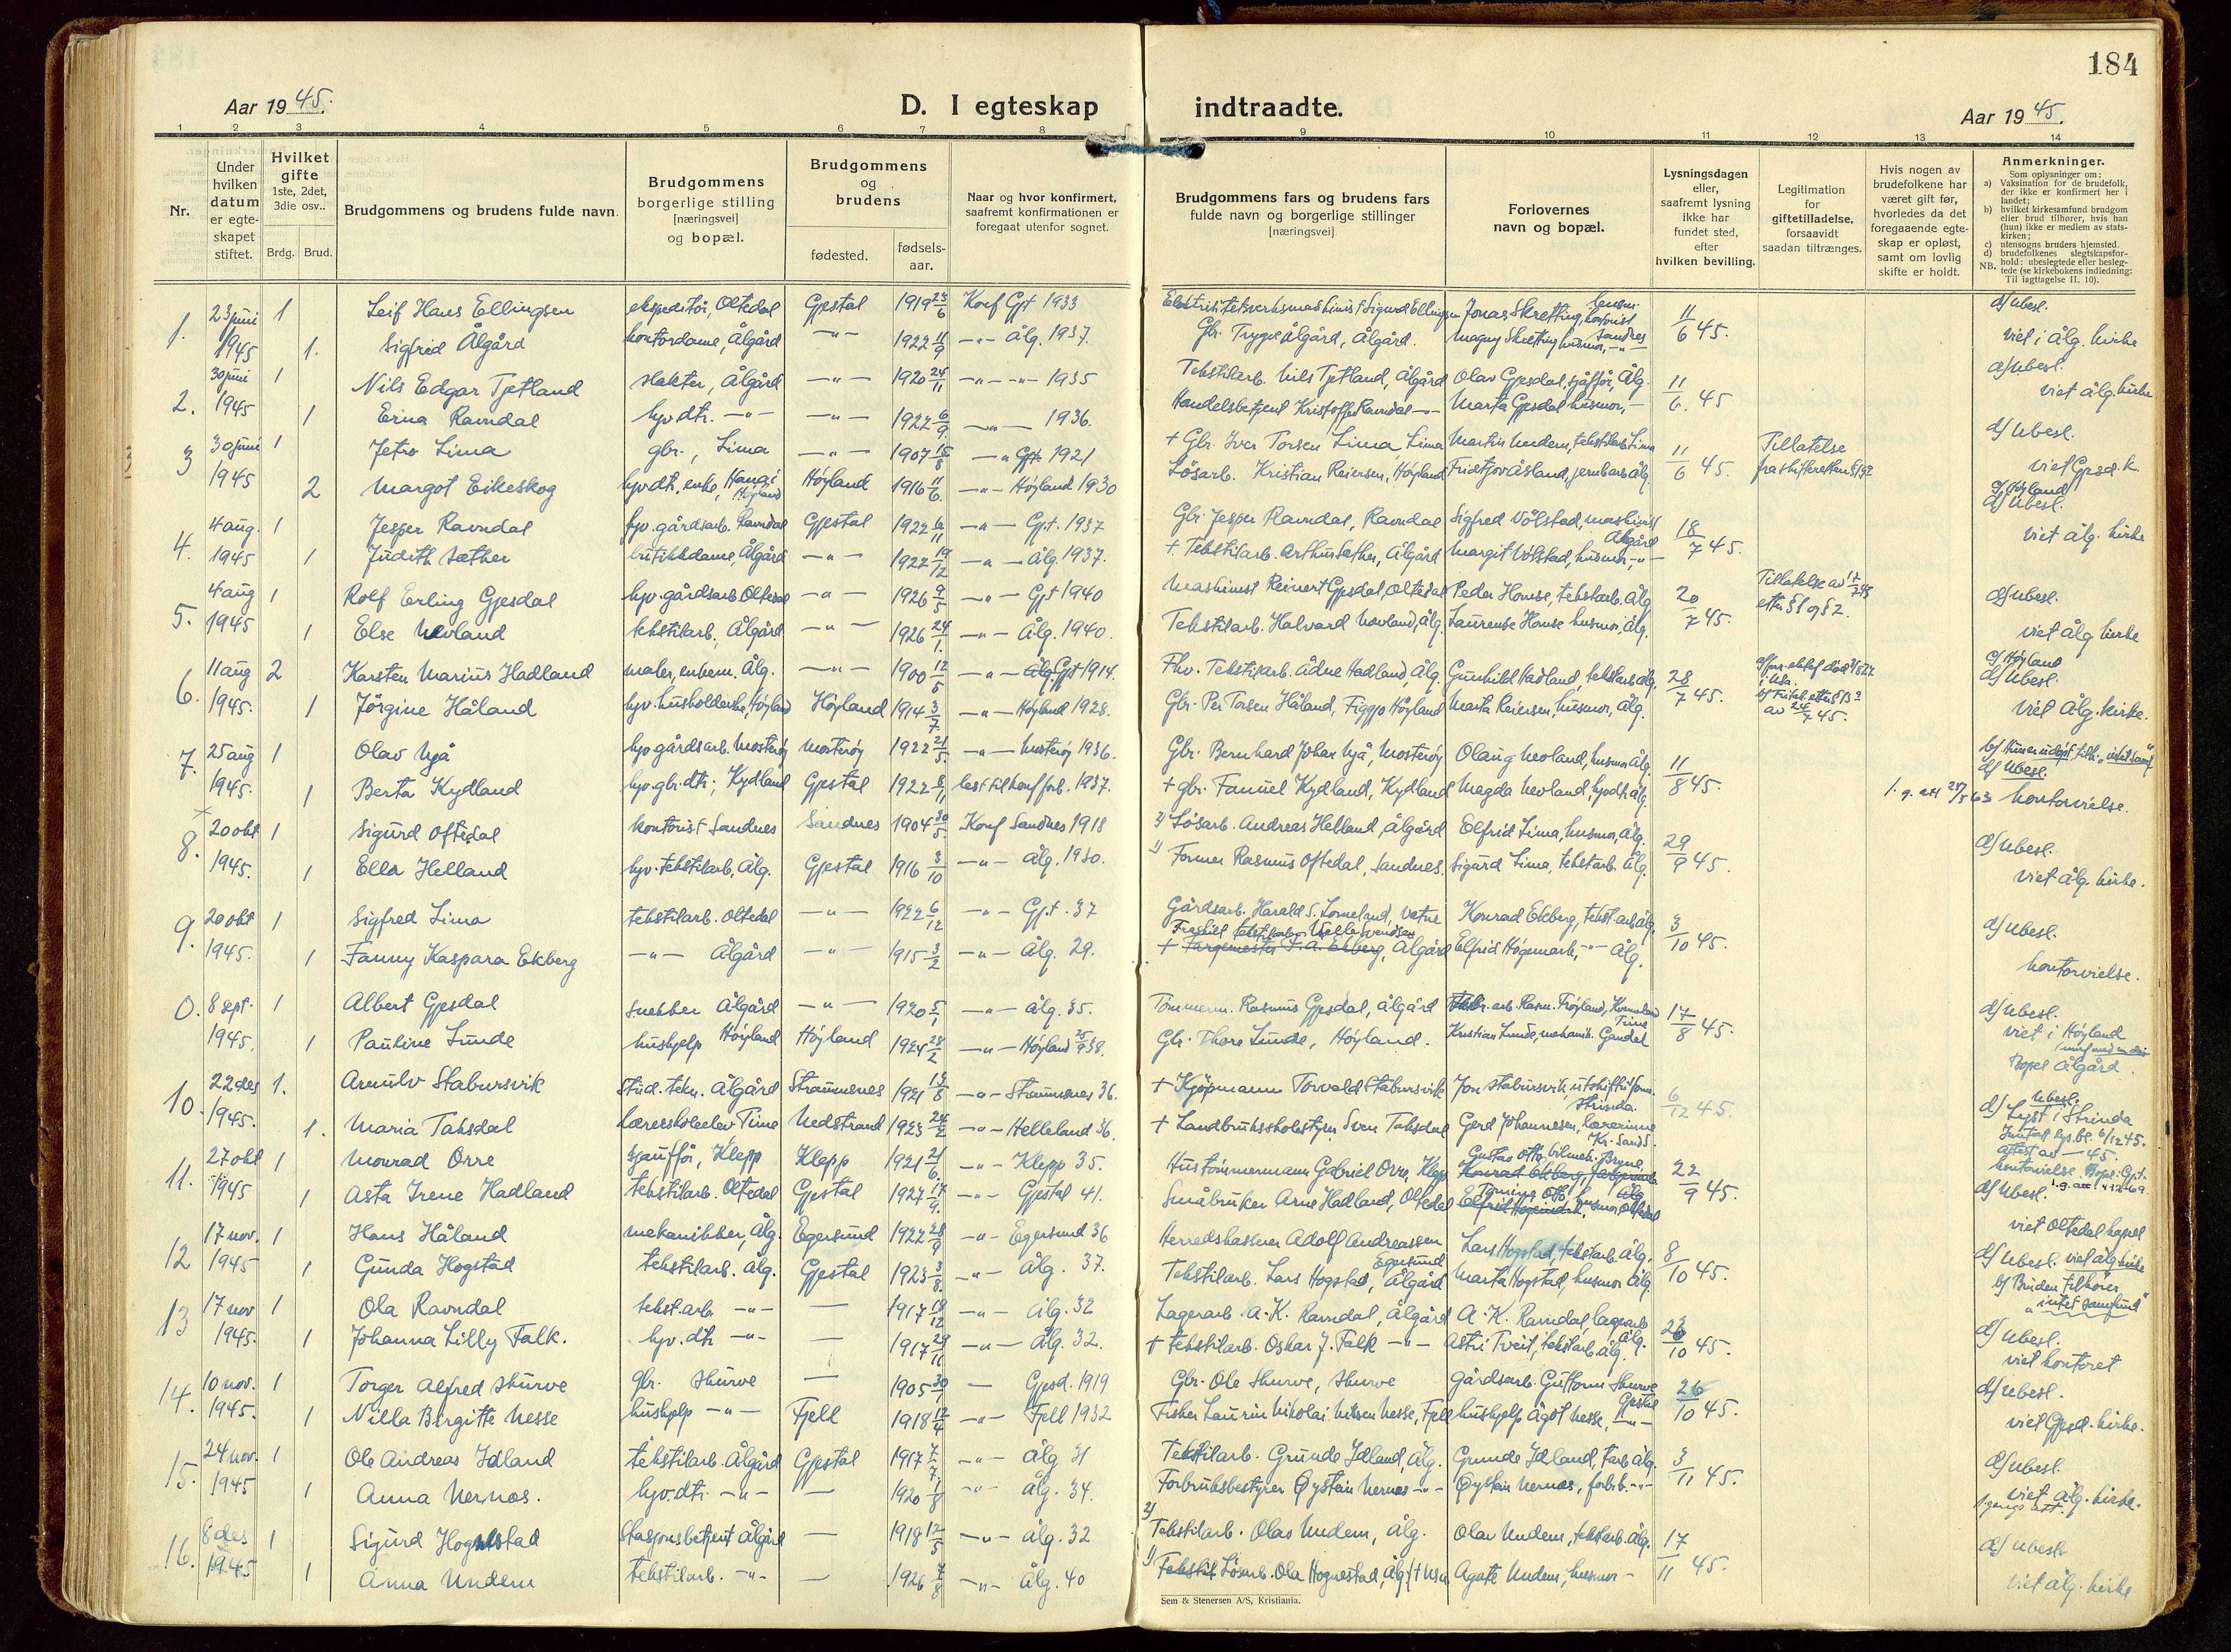 184
Aar 1945.
D. I egteskap indtraadte.
Aar 1945.
1 2 3 4 5 6 7 8 9 10 11 12 13 14
Nr.
Under hvilken datum er egteskapet stiftet.
Hvilket gifte 1ste, 2det, 3die osv..
Brdg. Brud.
Brudgommens og brudens fulde navn.
Brudgommens borgerlige stilling [næringsvei] og bopæl.
Brudgommens og brudens
fødested. fødselsaar.
Naar og hvor konfirmert, saafremt konfirmationen er foregaat utenfor sognet.
Brudgommens fars og brudens fars fulde navn og borgerlige stillinger [næringsvei]
Forlovernes navn og bopæl.
Lysningsdagen eller, saafremt lysning ikke har fundet sted, efter hvilken bevilling.
Legitimation for giftetilladelse, forsaavidt saadan tiltrænges.
Hvis nogen av brudefolkene har været gift før, hvorledes da det foregaaende egteskap er opløst, samt om lovlig skifte er holdt.
Anmerkninger.
Som oplysninger om:
a) Vaksination for de brudefolk, der ikke er konfirmert her i landet;
b) hvilket kirkesamfund brudgom eller brud tilhører, hvis han (hun) ikke er medlem av statskirken;
c) utensogns bruders hjemsted.
d) brudefolkenes slegtskapsforhold: ubeslegtede eller beslegtede (se kirkebokens indledning:
NB. Til iagttagelse II. 10).
1. 23 juni 1 Leif Hans Ellingsen ekspeditör, Oltedal Gjestal 1919 23/6 Konf Gjt 1933 Elektrisitetsverksmaskinist Sigurd Ellingsen Jonas Skretting, kontorist Sandnes 11/6 45. d/ ubesl.
1945 1. Sigfrid Ålgård kontordame, Ålgård -"- 1922 11/9 -"- Ålg. 1937. Gbr. Trygve Ålgård, Ålgård. Magny Skretting husmor, -"- viet i Ålg. kirke
2. 30 juni 1 Nils Edgar Tjetland slakter, Ålgård -"- 1920 24/11 -"- -"- 1935 Tekstilarb. Nils Tjetland, Ålgård Olav Gjesdal, sjåffør, Ålg. 11/6. 45 d/ ubesl.
1945 1 Erna Ravndal hjv. dtr. -"- -"- 1922 6/9. -"- 1936. Handelsbetjent Kristoffer Ravndal -"- Marta Gjesdal husmor, - viet Ålg. kirke
3 30 juni 1 Jetro Lima gbr., Lima -"- 1907 15/8 -"- Gjt. 1921 + Gbr. Iver Torsen Lima, Lima Martin Undem, tekstilarb. Lima 11/6 45. Tillatelse d/ ubesl.
1945 2 Margot Eikeskog hjv. dtr, enke, Hana i Høyland Høyland 1916 11/6. -"- Høyland 1930 Løsarb. Kristian Reiersen, Høyland Fridtjov Åsland, jernbarb. Ålg. fra skifteretten viet Gjesd. k.
c/ Høyland
4. 4 aug. 1 Jesper Ravndal hjv. gårdsarb. Ravndal Gjestal 1922 6/11 -"- Gjt. 1937 Gbr. Jesper Ravndal, Ravndal Sigfred Vølstad, maskinist Ålgård 18/7 45. d/ ubesl.
1945 1 Judith Sæther butikkdame, Ålgård -"- 1922 19/12 -"- Ålg. 1937. + Tekstilarb. Arthur Sæther, Ålgård Margit Vølstad, husmor, -"- viet Ålg. kirke
5. 4 aug 1 Rolf Erling Gjesdal hjv. gårdsarb. Oltedal -"- 1926 9/5 -"- Gjt 1940 Maskinist Reinert Gjesdal, Oltedal Peder Homse, tekstarb. Ålg. 20/7 45. Tillatelse av 17/7 45 d/ ubesl.
1945 1 Else Nevland tekstilarb., Ålgård -"- 1926 24/1. -"- Ålg. 1940. Tekstilarb. Halvard Nevland, Ålg. Laurense Homse husmor, Ålg. etter § 1 og § 2. viet Ålg. kirke
6. 11 aug 2 Karsten Marius Hadland maler, enkem. Ålg. -"- 1900 12/5 -"- Gjt 1914. Fhv. Tekstilarb. Ådne Hadland, Ålg. Gunhild Hadland, tekstarb. Ålg. 28/7 45. i Usa. c/ Høyland d/ ubesl.
1945. 1 Jörgine Håland hjv. husholderske, Høyland Høyland 1914 3/7 -"- Høyland 1928. Gbr. Per Torsen Håland, Figgjo Høyland Marta Reiersen, husmor, Ålg. av 24/7 45. viet Ålg. kirke.
7. 25 aug 1 Olav Njå hjv gårdsarb. Mosterøy Mosterøy 1922 21/5. -"- Mosterøy 1936. Gbr. Bernhard Johan Njå, Mosterøy Olaug Nevland, husmor Ålg. 11/8 45. d/ ubesl.
1945. 1 Berta Kydland hjv. gbr. dtr; Kydland Gjestal 1922 8/11 lest til konf forb. 1937. + gbr. Fanuel Kydland, Kydland Magda Nevland, hjvdt. Ålg. kontorvielse.
8. 20 okt 1 Sigurd Oftedal kontorist Sandnes Sandnes 1904 30/5 Konf Sandnes 1918 2) Løsarb. Andreas Helland, Ålgård Elfrid Lima, husmor, Ålg. 29/9 45. d/ ubesl.
1945. 1 Ella Helland hjv. tekstilarb, Ålg. Gjestal 1916 3/10 -"- Ålg. 1930. 1) Former Rasmus Oftedal, Sandnes. Sigurd Lima, tekstarb. Ålg. viet Ålg. kirke.
9. 20 okt 1 Sigfred Lima tekstilarb. Oltedal -"- 1922 6/12 -"- Gjt. 37 Gårdsarb. Harald S. Lomeland, Vatne Konrad Ekberg, tekst.arb. Ålg. 3/10 45. d/ ubesl.
1945. 1 Fanny Kaspara Ekberg -"- Ålgård -"- 1915 3/2 -"- Ålg. 29. + Fargemester F. A. Ekberg, Ålgård Elfrid Høgemark, -"- Ålg. kontorvielse.
0. 8 sept. 1 Albert Gjesdal snekker Ålgård -"- 1920 5/1 -"- Ålg. 35. Tømmerm. Rasmus Gjesdal, Ålgård arb. Rasm. Frøyland, Time 17/8 45. d/ ubesl.
1945. 1 Pauline Lunde hushjelp Høyland Høyland 1924 28/2 -"- Høyland 25/9 38. Gbr. Thore Lunde, Høyland. Kristian Lunde, mekanik. Gandal viet i Høyland
Bopel Ålgård.
10. 22 des 1. Arnulv Stabursvik stud. tekn. Ålgård Straumsnes 1921 18/8 -"- Straumsnes 36. + Kjøpmann Torvald Stabursvik Jon Stabursvik, Strinda. 6/12 45. d/ ubesl.
1945. 1. Maria Taksdal Lærerskoleelev Time Nedstrand 1923 24/2 -"- Helleland 36. + Landbruksskolestyrer Sven Taksdal Gerd Johannesen, lærerinne Kr. Sand S. Lyst i Strinda
11. 27 okt 1 Monrad Orre sjauffør, Klepp Klepp 1921 21/6. -"- Klepp 35. Hustømmermann Gabriel Orre, Klepp Konrad Ekberg, 22/9 45. kontorvielse
1945 1 Asta Irene Hadland tekstilarb. Oltedal Gjestal 1927 17/9. -"- Gjestal 41. Småbruker Arne Hadland, Oltedal Elfrid Høgemark, d/ ubesl.
viet Oltedal kapel
12 17 nov. 1 Hans Håland mekanikker, Ålg. Egersund 1922 28/9 -"- Egersund 36 Herredskasserer Adolf Andreassen Egersund Lars Hogstad, tekstarb. Ålg. 8/10 45. d/ ubesl. viet Ålg kirke
1945 1 Gunda Hogstad tekstilarb. Ålg. Gjestal 1923 3/8. -"- Ålg. 37. Tekstilarb. Lars Hogstad, Ålgård Marta Hogstad, husmor Ålg. b/ Bruden tilhører "intet samfund"
13 17 nov 1 Ola Ravndal tekst.arb. -"- — 1917 18/12 -"- Ålg. 32 Lagerarb. A. K. Ravndal, Ålgård A. K. Ravndal, lagerarb Ålg. 23/10 45. d/ ubesl.
1945. 1 Johanna Lilly Falk. hjv. dtr -"- — 1917 29/11 -"- Ålg. 32. + tekstilarb. Oskar J. Falk -"- Astri Tveit, tekstarb. Ålg. viet kontoret
14. 10 nov. 1 Torger Alfred Skurve gbr. Skurve — 1905 30/1 — Gjesd. 1919 Gbr. Ole Skurve, Skurve Gårdsarb. Guttorm Skurve Gjestal 26/10 45. d/ ubesl.
1945. 1 Nilla Birgitte Nesse hushjelp -"- Fjell 1918 12/4 -"- Fjell 1932 Fisker Laurin Nikolai Nilsen Nesse, Fjell hushjelp Ågot Nesse, -"- viet Gjesd. kirke.
15. 24 nov. 1 Ole Andreas Idland tekstilarb. Ålgård Gjestal 1917 7/7. -"- Ålg 31 Tekstilarb. Grunde Idland, Ålg. Grunde Idland, t.arb. Ålg. 3/11 45. d/ ubesl.
1945 1 Anna Nernæs. hjv. dtr. -"- — 1920 1/8 -"- Ålg. 34. Forbruksbestyrer Øystein Nernæs -"- Øystein Nernæs, forb.b. -"- viet Ålg. kirke.
16. 8 des 1 Sigurd Hognestad Stasjonsbetjent Ålgård — 1918 12/5 -"- Ålg. 32 2) Tekstilarb. Olav Undem, Ålg. Olav Undem, tekstarb. Ålg. 17/11 45. d/ ubesl.
1945 1 Anna Undem tekstilarb. -"- — 1926 7/8 -"- Ålg. 40 1) Tekstil Løsarb. Ola Hognestad, Ålg. Agate Undem, husmor - viet Ålg. kirke
Sem & Stenersen A/S, Kristiania.